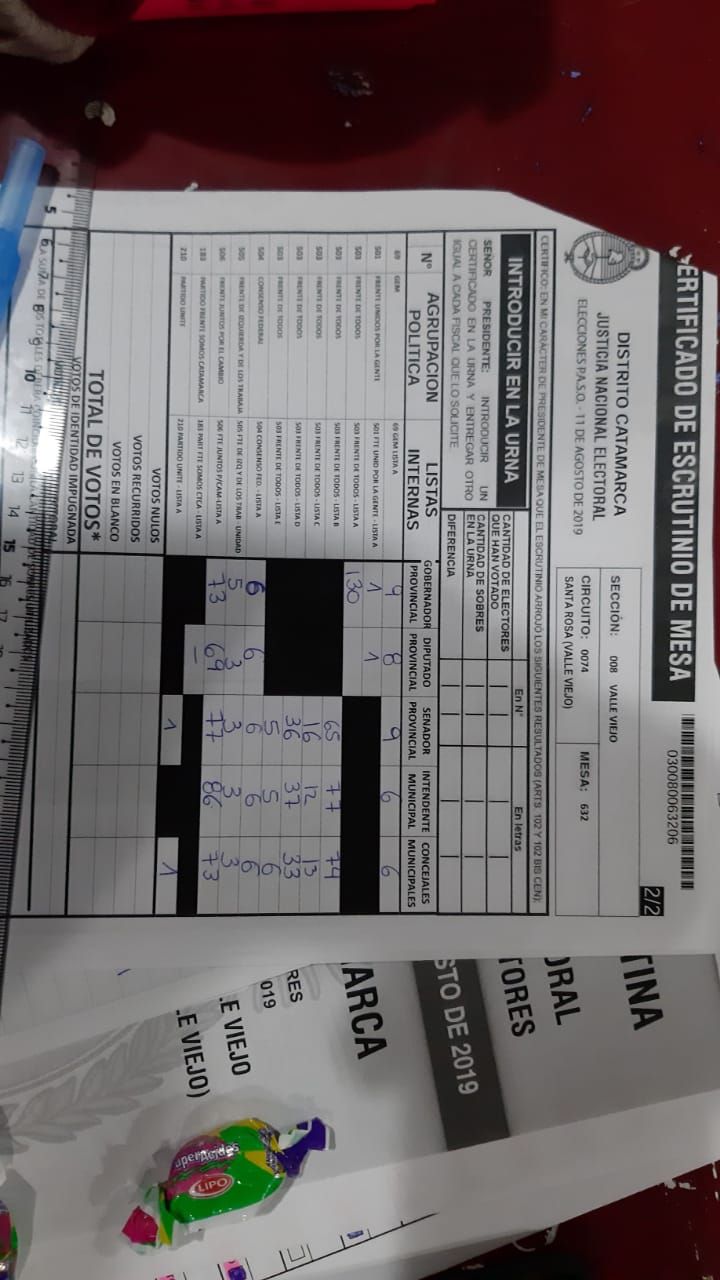 CERTIFICADO DE ESCRUTINIO DE MESA
030080063206
2/2
DISTRITO CATAMARCA
JUSTICIA NACIONAL ELECTORAL
ELECCIONES P.A.S.O. - 11 DE AGOSTO DE 2019
SECCIÓN: 008 VALLE VIEJO
CIRCUITO: 0074
SANTA ROSA (VALLE VIEJO)
MESA: 632
CERTIFICO: EN MI CARÁCTER DE PRESIDENTE DE MESA QUE EL ESCRUTINIO ARROJÓ LOS SIGUIENTES RESULTADOS (ARTS. 102 Y 102 BIS CEN):
INTRODUCIR EN LA URNA
SEÑOR PRESIDENTE: INTRODUCIR UN
CERTIFICADO EN LA URNA Y ENTREGAR OTRO
IGUAL A CADA FISCAL QUE LO SOLICITE
En N° En letras
CANTIDAD DE ELECTORES
QUE HAN VOTADO
CANTIDAD DE SOBRES
EN LA URNA
DIFERENCIA
N° AGRUPACION POLITICA LISTAS INTERNAS GOBERNADOR PROVINCIAL DIPUTADO PROVINCIAL SENADOR PROVINCIAL INTENDENTE MUNICIPAL CONCEJALES MUNICIPALES
69 GEM 69 GEM LISTA A 9 8 9 6 6
501 FRENTE UNIDOS POR LA GENTE 501 FTE UNID POR LA GENTE - LISTA A 1 1
503 FRENTE DE TODOS 503 FRENTE DE TODOS - LISTA A 130
503 FRENTE DE TODOS 503 FRENTE DE TODOS - LISTA B 65 77 74
503 FRENTE DE TODOS 503 FRENTE DE TODOS - LISTA C 16 12 13
503 FRENTE DE TODOS 503 FRENTE DE TODOS - LISTA D 36 37 33
503 FRENTE DE TODOS 503 FRENTE DE TODOS - LISTA E 5 5 6
504 CONSENSO FEDERAL 504 CONSENSO FED. - LISTA A 6 6 6 6 6
505 FRENTE DE IZQUIERDA Y DE LOS TRABAJA 505 FTE DE IZQ Y DE LOS TRAB UNIDAD 5 3 3 3 3
506 FRENTE JUNTOS POR EL CAMBIO 506 FTE JUNTOS P/CAM-LISTA A 73 69 77 86 73
183 PARTIDO FRENTE SOMOS CATAMARCA 183 PART FTE SOMOS CTCA - LISTA A —
210 PARTIDO UNITE 210 PARTIDO UNITE - LISTA A 1 1
VOTOS NULOS
VOTOS RECURRIDOS
VOTOS EN BLANCO
TOTAL DE VOTOS*
VOTOS DE IDENTIDAD IMPUGNADA
5 6 8 9 10 11 12 13 14 15 16 17
TINA
ORAL
TORES
STO DE 2019
ARCA
RES
019
E VIEJO
E VIEJO)
uperAcidos
LIPO